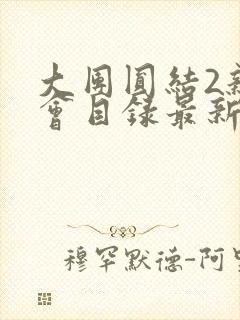 大周圓結2新
會目錄最新
穆罕默德-阿里